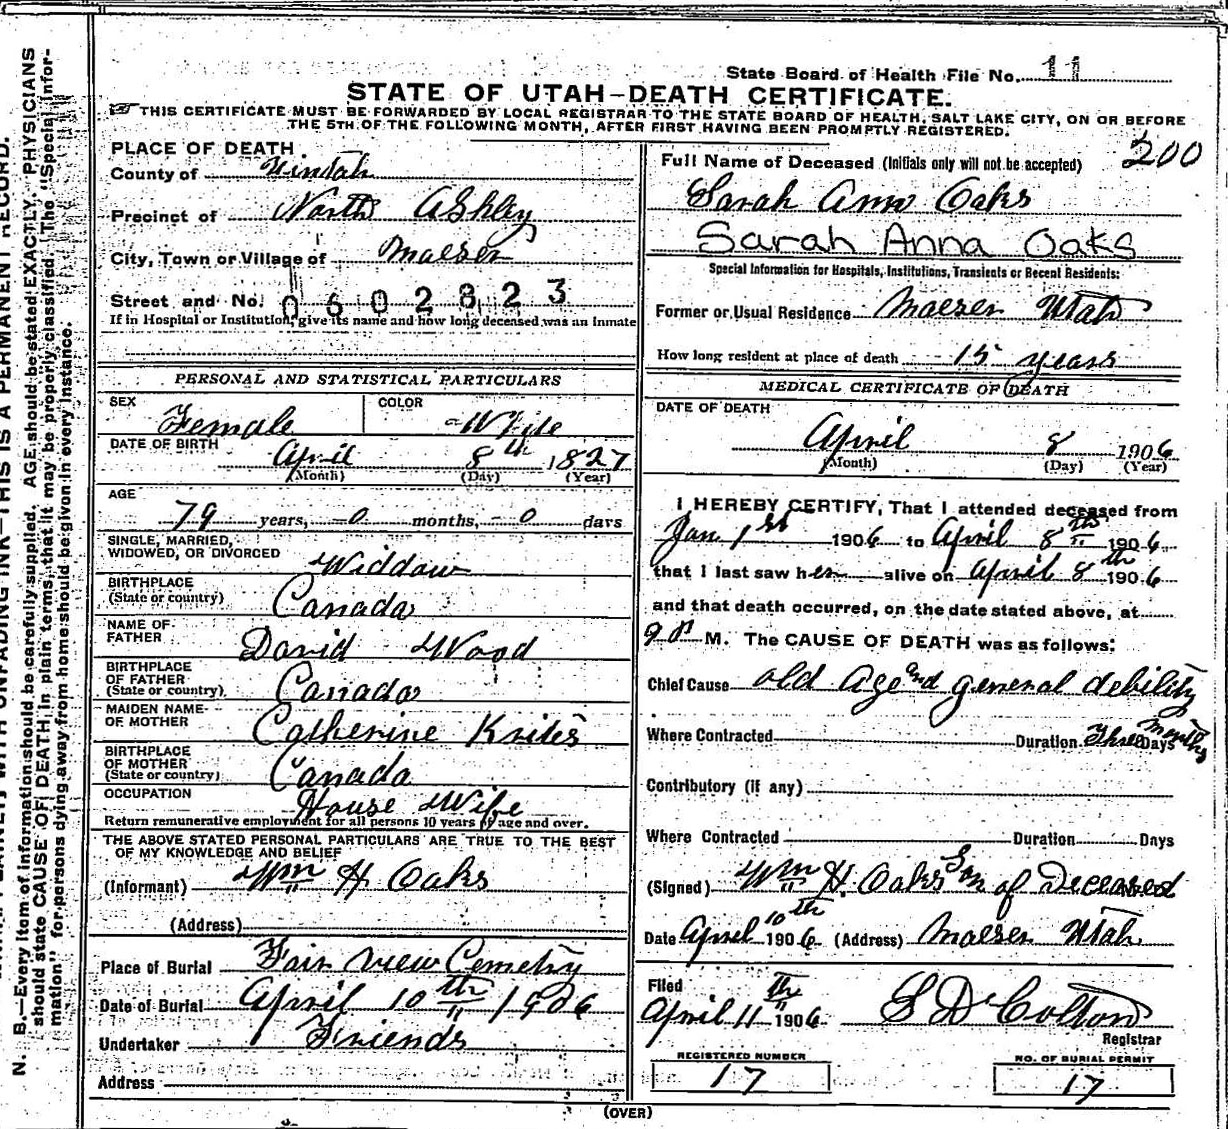 State Board of Health File No. 11
STATE OF UTAH—DEATH CERTIFICATE.
THIS CERTIFICATE MUST BE FORWARDED BY LOCAL REGISTRAR TO THE STATE BOARD OF HEALTH, SALT LAKE CITY, ON OR BEFORE
THE 5TH OF THE FOLLOWING MONTH, AFTER FIRST HAVING BEEN PROMPTLY REGISTERED.
200
PLACE OF DEATH
County of Uintah
Precinct of North Ashley
City, Town or Village of Maeser
Street and No. 0602823
If in Hospital or Institution, give its name and how long deceased was an Inmate
PERSONAL AND STATISTICAL PARTICULARS
SEX Female COLOR White
DATE OF BIRTH April 8th 1827
(Month) (Day) (Year)
AGE
79 years, 0 months, 0 days
SINGLE, MARRIED,
WIDOWED, OR DIVORCED Widdow
BIRTHPLACE
(State or country) Canada
NAME OF
FATHER David Wood
BIRTHPLACE
OF FATHER
(State or country) Canada
MAIDEN NAME
OF MOTHER Catherine Krites
BIRTHPLACE
OF MOTHER
(State or country) Canada
OCCUPATION House Wife
Return remunerative employment for all persons 10 years of age and over.
THE ABOVE STATED PERSONAL PARTICULARS ARE TRUE TO THE BEST
OF MY KNOWLEDGE AND BELIEF
(Informant) Wm H Oaks
(Address)
Place of Burial Fair view Cemetry
Date of Burial April 10th 1906
Undertaker Friends
Address
Full Name of Deceased (Initials only will not be accepted)
Sarah Ann Oaks
Sarah Anna Oaks
Special Information for Hospitals, Institutions, Transients or Recent Residents:
Former or Usual Residence Maeser Utah
How long resident at place of death 15 years
MEDICAL CERTIFICATE OF DEATH
DATE OF DEATH
April 8 1906
(Month) (Day) (Year)
I HEREBY CERTIFY, That I attended deceased from
Jan 1st 1906 to April 8th 1906
that I last saw her alive on April 8th 1906
and that death occurred, on the date stated above, at
9 P M. The CAUSE OF DEATH was as follows:
Chief Cause old age and general debility
Where Contracted Duration Three Days months
Contributory (if any)
Where Contracted Duration Days
(Signed) Wm H. Oaks Son of Deceased
Date April 10th 1906 (Address) Maeser Utah
Filed
April 11th 1906 S D Colton
Registrar
REGISTERED NUMBER
17
NO. OF BURIAL PERMIT
17
(OVER)
N. B.—Every item of information should be carefully supplied. AGE should be stated EXACTLY. PHYSICIANS
should state CAUSE OF DEATH in plain terms, that it may be properly classified. The "Special Infor-
mation" for persons dying away from home should be given in every instance.